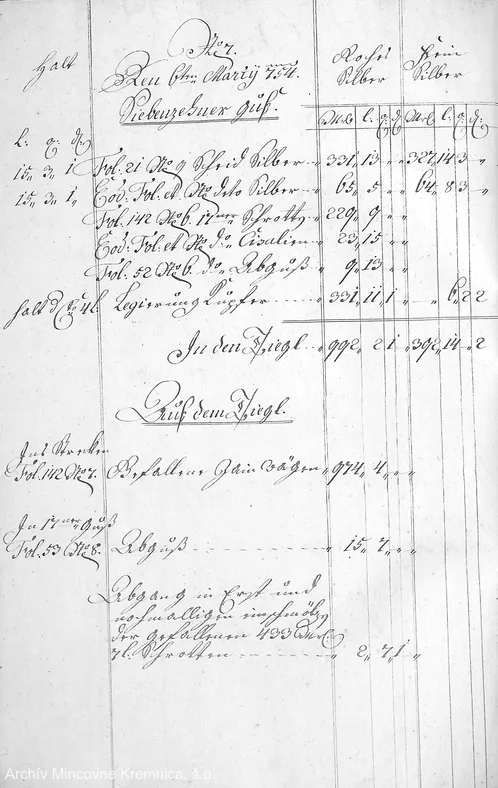 No 7.
Halt Den 6ten Martij 754. Rochs Fein
Siebenzehner Guß. Silber Silber
Mrk l. q: d Mrk l: q: d:
l: q: d:
15 3 1 Fol. 21 No 9 Scheid Silber 331 13 327 14 3
15 3 1 Eod: Fol. et No deto Silber 65 5 64 8 3
Fol. 142 No 6. 17ner Schrotty 229 9
Eod: Fol. et No do Cisalien 23 15
Fol. 52 No 6. do Abguß 9 13
halt 4 l. Legierung Kupfer 331 11 1 6 2 2
In den Tiegl 992 2 1 392 14 2
Auß dem Tiegl.
Ins Strecken
Fol. 142 No 7. Gefallene Zain wägen 974 4
In 17ner Guß
Fol. 53 No 8. Abguß 15 7
Abgang in Erst und
nochmalligen einschmölz
der gefallenen 433 Mrk:
7 l: Schrotten 2 7 1
Archív Mincovne Kremnica, š.p.